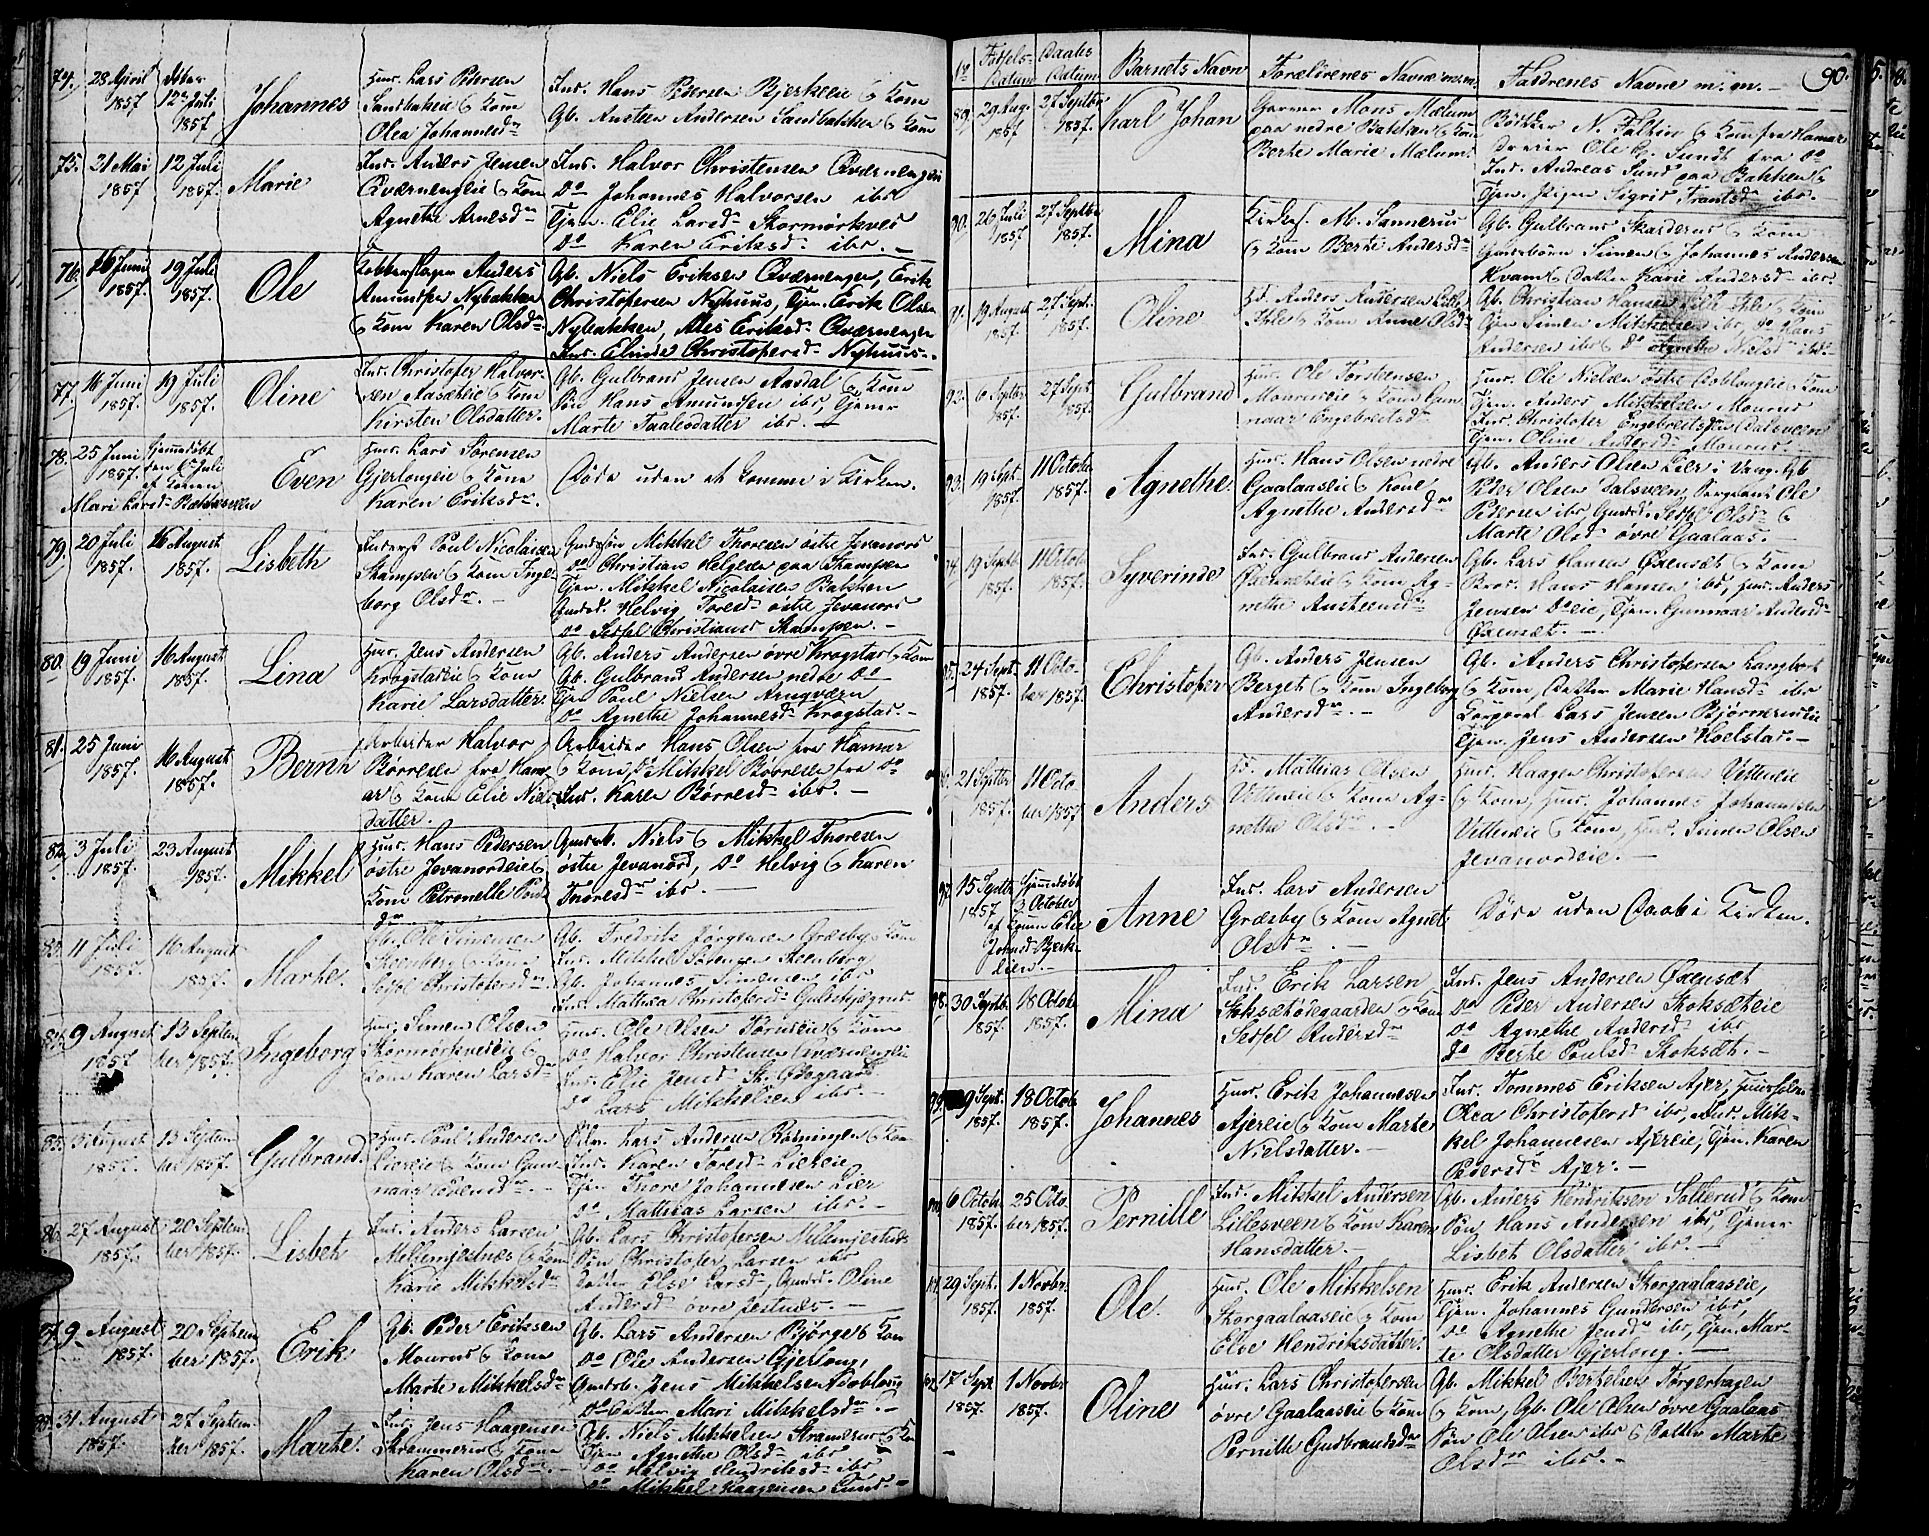 74. 28 April 1857. 12te Juli 1857. Johannes
Huus. Lars Pedersen
Sandbakeie & Kone
Olea Johannesdr
Ins. Hans Pedersen Bjerkeeie & Kone
Gb. Austeen Andersen Sandbakken & Kone
75. 21 Mai 1857 12 Juli 1857. Marie
Ins. Anders Jensen
Qværnengeie & Kone
Agnethe Arnesdr
Ins. Halvor Christensen Qværnengeie
Do Johannes Halvorsen ibd
Tjen. Elie Larsd. Skormørkved
Do Karen Eriksd. ibr.
76. 16 Juni 1857. 19 Juli 1857. Ole
Kobberslager Anders
Amundsen Nybakken
& Kone Karen Olsdr
Gb. Niels Eriksen Qværnengen, Erik
Christofersen Nyhuus, Tjen. Erik Olsen
Nybakken, Ales Eriksd. Qværnengen
Ins. Elinde Christofersd. Nyhuus.
77. 16 Juni 1857. 19 Juli 1857. Oline
Ins. Christofer Halvor-
sen Aasæteie & Kone
Kirsten Olsdatter.
Gb. Gulbrand Jensen Aasdal & Kone
Søn Hans Amundsen ibr, Tjener
Marte Paalesdatter ibr.
78. 25 Juni 1857. Hjemmedøbt den 6te Juli af Konen
Mari Larsd. Bakkesveen
Even
Huus. Lars Sørensen
Gjerlongeie & Kone
Karen Eriksdr.
Døde uden at komme i Kirken.
79. 20 Juli 1857. 16 August 1857. Lisbeth
Inderst Poul Nicolaisen
Stampen & Kone Inge-
borg Olsdr.
Gaardsøn Mikkel Thoresen østre Jevanord
Do Christian Helgesen paa Stampen
Tjen. Mikkel Nicolaisen Bakken
Gaardd. Helvig Toresd. østre Jevanord
Do Sidsel Christiansd. Stampen.
80. 19 Juni 1857. 16 August 1857. Lina
Huus. Jens Andersen
Kragstadeie & Kone
Karie Larsdatter.
Gb. Anders Andersen øvre Kragstad & Kone
Gb. Gulbrand Andersen nedre Do
Tjen Poul Nielsen Arnqværn
Do Agnethe Johannesd. Kragstad.
81. 25 Juni 1857. 16 August 1857. Bernh
Arbeider Halvor
Børresen fra Ham-
ar & Kone Elie Niels-
datter.
Arbeider Hans Olsen fra Hamar
& Kone, Do Mikkel Børresen fra Do
Ins. Karen Børresd. ibr.
82. 3 Juli 1857. 23 August 1857. Mikkel
Huus. Hans Pedersen
østre Jevanordeie &
Kone Petronelle Pouls-
dr
Gaardb. Niels & Mikkel Thoresen
østre Jevanord, Do Helvig & Karen
Thoresdr ibr.
83. 11 Juli 1857. 16 August 1857. Marthe.
Gb. Ole Simensen
Steenberg & Kone
Sidsel Christofersdr
Gb. Fredrik Jørgensen Græsby & Kone
Ins. Mikkel Sørensen Steenberg
Gb. Johannes Simensen ibr
Ins. Mathea Christofersd.
84. 9 August 1857 13 Septem ber 1857. Ingeborg
Huus. Simen Olsen
Skormørkvedeie &
Kone Karen Larsdr
Huus. Ole Olsen & Kone
Do Halvor Christensen Qværnengeie
Ins. Elie Jensd.
Do Lars Mikkelsen ibr.
85. August 1857. 13 Septem ber 1857. Gulbrand.
Huus. Poul Andersen
Liereie & Kone Gun-
naar Evensdr.
Lars Andersen & Kone
Ins. Karen Toresd. Liereie
Tjen Thore Johannesen Lier
Do Mathias Larsen ibr.
86. 27 August 1857. 20 Septem ber 1857. Lisbet
Ins. Anders Larsen
Mellemjestnes & Kone
Karie Mikkelsdr
Gb. Lars Christofersen Mellemjestnes
Søn Christofer Larsen ibr
Datter Else Larsd., Gaardd. Oline
Andersd øvre Jestnes.
87. 9. August 1857. 20 Septem ber 1857. Erik
Gb. Peder Eriksen
Maurud & Kone
Marte Mikkelsdr
Gb. Lars Andersen Bjørge & Kone
Do Ole Andersen Gjerlong,
Gaardb. Jens Mikkelsen
Do Datter Mari Mikkelsdr.
88. 31 August 1857. 27 Septem- ber 1857. Marthe.
Ins. Jens Haagensen
Strammerud & Kone
Karen Olsdr.
Gb. Niels Mikkelsen Strammerud & Kone
Tjen Agnethe Olsd. ibr
Do Helvig Hendriksd. ibr
Do Mikkel Haagensen Lund.
Fødsels-Datum Daabs Datum Barnets Navn Forældrenes Navne m.m. Faddrenes Navne m.m. 90.
89. 29 Aug. 1857 27 Septbr 1857. Karl Johan
Garver Mons Mælum
paa nedre Bakken & Kone
Berte Marie Mælum.
Bødker N. Faltin & Kone fra Hamar
Dreier Ole G. Sundt fra Do
Ins. Andreas Lund paa Bakken &
Tjen. Pigen Sigrid Frantsdr ibr.
90. 26 Juli 1857. 27 Septbr 1857. Mina
M. Sannerud
& Kone Berte Andersdr
Gb. Gulbrand Skarderud & Kone
Gaardbørn Simen & Johannes Andersen
Kvam & Datter Karie Andersd. ibr.
91. 19 August 1857. 27 Sept. 1857. Oline
Anders Andersen Lille
Ihle & Kone Anne Olsdr
Gb. Christian Hansen Lille Ihle & Kone
Tjen Simen Mikkelsen ibr, do Hans
Andersen ibr & Do Agnethe Nielsd ibr.
92. 6 Septbr 1857. 27 Sept 1857. Gulbrand
Huus. Ole Torstensen
Maurudeie & Kone Gun
naar Engebretsdr
Huus. Ole Nielsen østre & Kone
Tjen. Anders Mikkelsen Maurud
Ins. Christofer Engebretsen Dalsveen
Tjen. Oline Andersd. Maurud.
93. 19 Sept. 1857. 11 Octobr 1857. Agnethe.
Huus. Hans Olsen nedre
Gaalaaseie & Kone
Agnethe Andersdr
Gb. Anders Olsen Lier i Vang. Gb
Peder Olsen Dalsveen, Sergeant Ole
Pedersen ibr, Gaardd. Sidsel Olsdr &
Marte Olsd øvre Gaalaas.
94. 19 Septbr 1857. 11 Octob 1857. Syverinde
Ins. Gulbrand Andersen
& Kone Ag-
nethe Austeensdr
Gb. Lars Hansen Øxensæt & Kone
Broder Hans Hansen ibd, Huus. Anders
Jensen Do eie, Tjen. Gunnaar Andersdr
Øxensæt.
95. 24 Sept 1857. 11 Octo- ber 1857. Christofer
Gb. Anders Jensen
Berget & Kone Ingeborg
Andersdr.
Gb. Anders Christofersen Langbot
& Kone, Datter Marie Hansdr ibr
Corporal Lars Jensen Bjørnerudeie
Tjen. Jens Andersen Hoelstad.
96. 21 Septbr 1857. 11 Octo ber 1857 Anders
Mathias Olsen
Vitteneie & Kone Ag-
nethe Olsdr.
Huus. Haagen Christofersen Vitteneie
& Kone, Huus. Johannes Johannesen
Vitteneie & Kone, Huus. Simen Olsen
Jevanordeie.
97. 15 Septbr 1857 Hjemmedøbt 3 October af Konen Elie Johnsd. Bjerk- eien. Anne
Ins. Lars Andersen
Græsby & Kone Agnet
Olsdr.
Døde uden Daab i Kirken.
98. 30 Septbr 1857. 18 Octobr 1857. Mina
Ins. Erik Larsen
Stoksætødegaarden & Kone
Sidsel Andersdr
Ins. Jens Andersen Øxensæt
Do Peder Andersen Stoksæteie
Do Agnethe Andersd. ibr
Do Berte Poulsd. Stoksæt.
99. 9 Sept. 1857. 18 Octob 1857. Johannes
Huus. Erik Johannesen
Ajereie & Kone Marte
Nielsdatter.
Ins. Tommes Eriksen Ajer, Huusholder
Olea Christofersd ibr, Ins. Mik-
kel Johannesen Ajereie, Tjen. Karen
Pedersdr Ajer.
100. 6 Octob 1857. 25 Octo- ber 1857. Pernille
Ins. Mikkel Andersen
Lillesveen & Kone Karen
Hansdatter.
Gb. Anders Hendriksen Sollerud & Kone
Søn Hans Andersen ibr, Tjener
Lisbet Olsdatter ibr.
101. 29 Sept. 1857. 1 Novbr. 1857. Ole.
Huus. Ole Mikkelsen
Skorgaalaaseie & Kone
Else Hendriksdatter.
Huus. Erik Andersen Skorgaalaaseie,
Tjen. Johannes Gundersen ibr
Do Agnethe Jensdr ibr, Tjen. Mar-
te Olsdatter Gjerlong.
102. 17 Sept 1857. 1 Novbr 1857. Oline
Huus. Lars Christofersen
øvre Gaalaaseie & Kone
Pernille Gudbrandsdr
Gb. Mikkel Bertelsen Torgerhagen
& Kone, Gb. Ole Olsen øvre Gaalaas
Søn Ole Olsen ibr & Datter Marthe
Olsdr ibr.